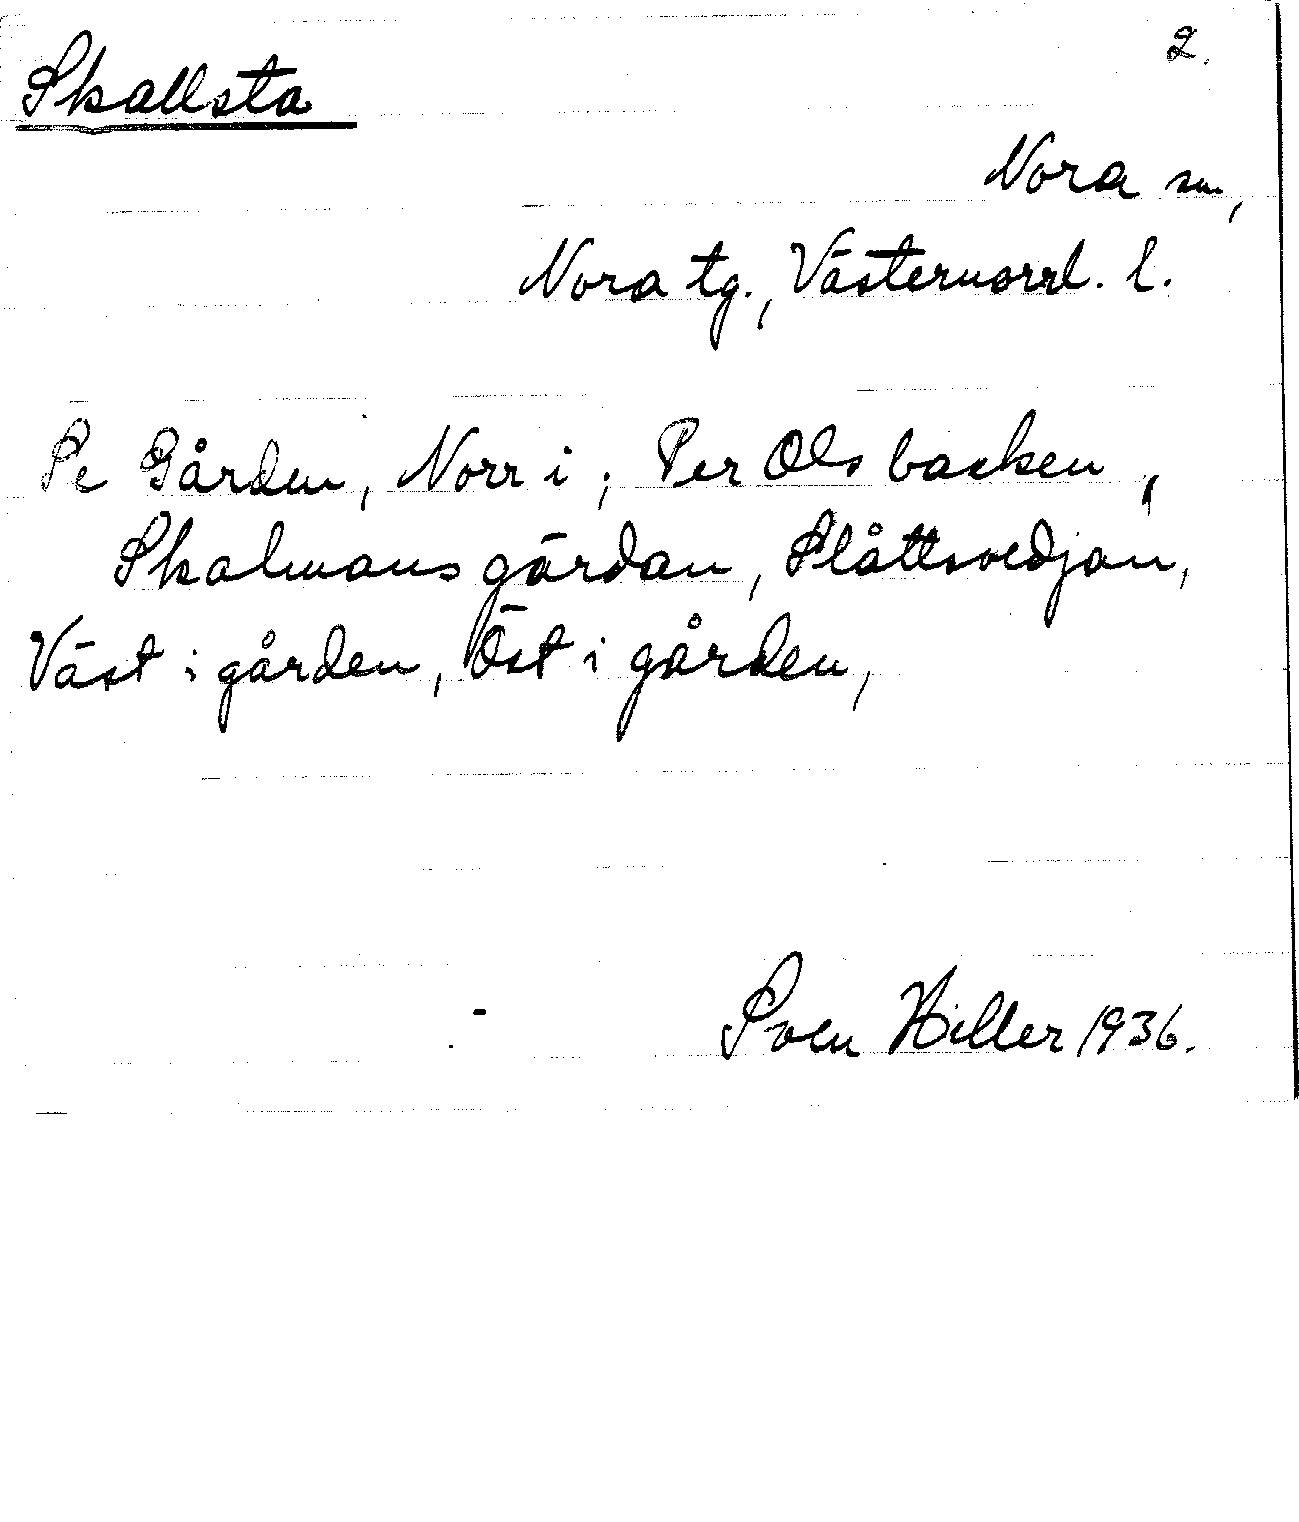 2.
Skallsta
Nora sn,
Nora tg., Västernorrl. l.
Pe Gården, Norr i, Per Ols backen,
Skalmansgärdan, Slåttsvedjan,
Väst i gården, Öst i gården,
Sven Hiller 1936.